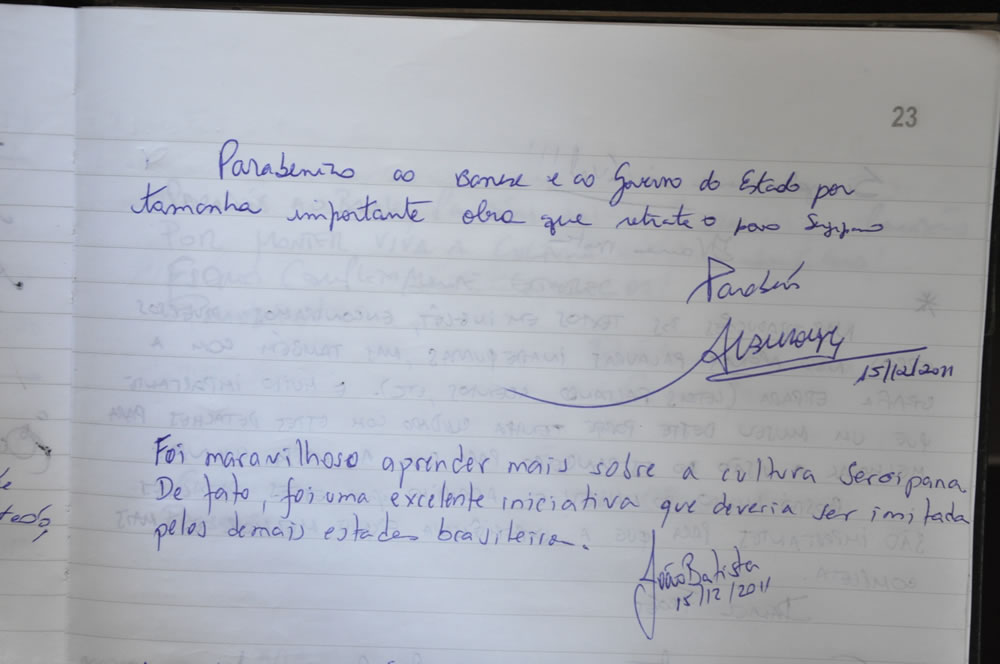 23
Parabenizo ao Banese e ao Governo do Estado por
tamanha importante obra que retrata o povo Sergipano
Parabéns
15/12/2011
Foi maravilhoso aprender mais sobre a cultura Sergipana
De fato, foi uma excelente iniciativa que deveria ser imitada
pelos demais estados brasileiros.
João Batista
15/12/2011